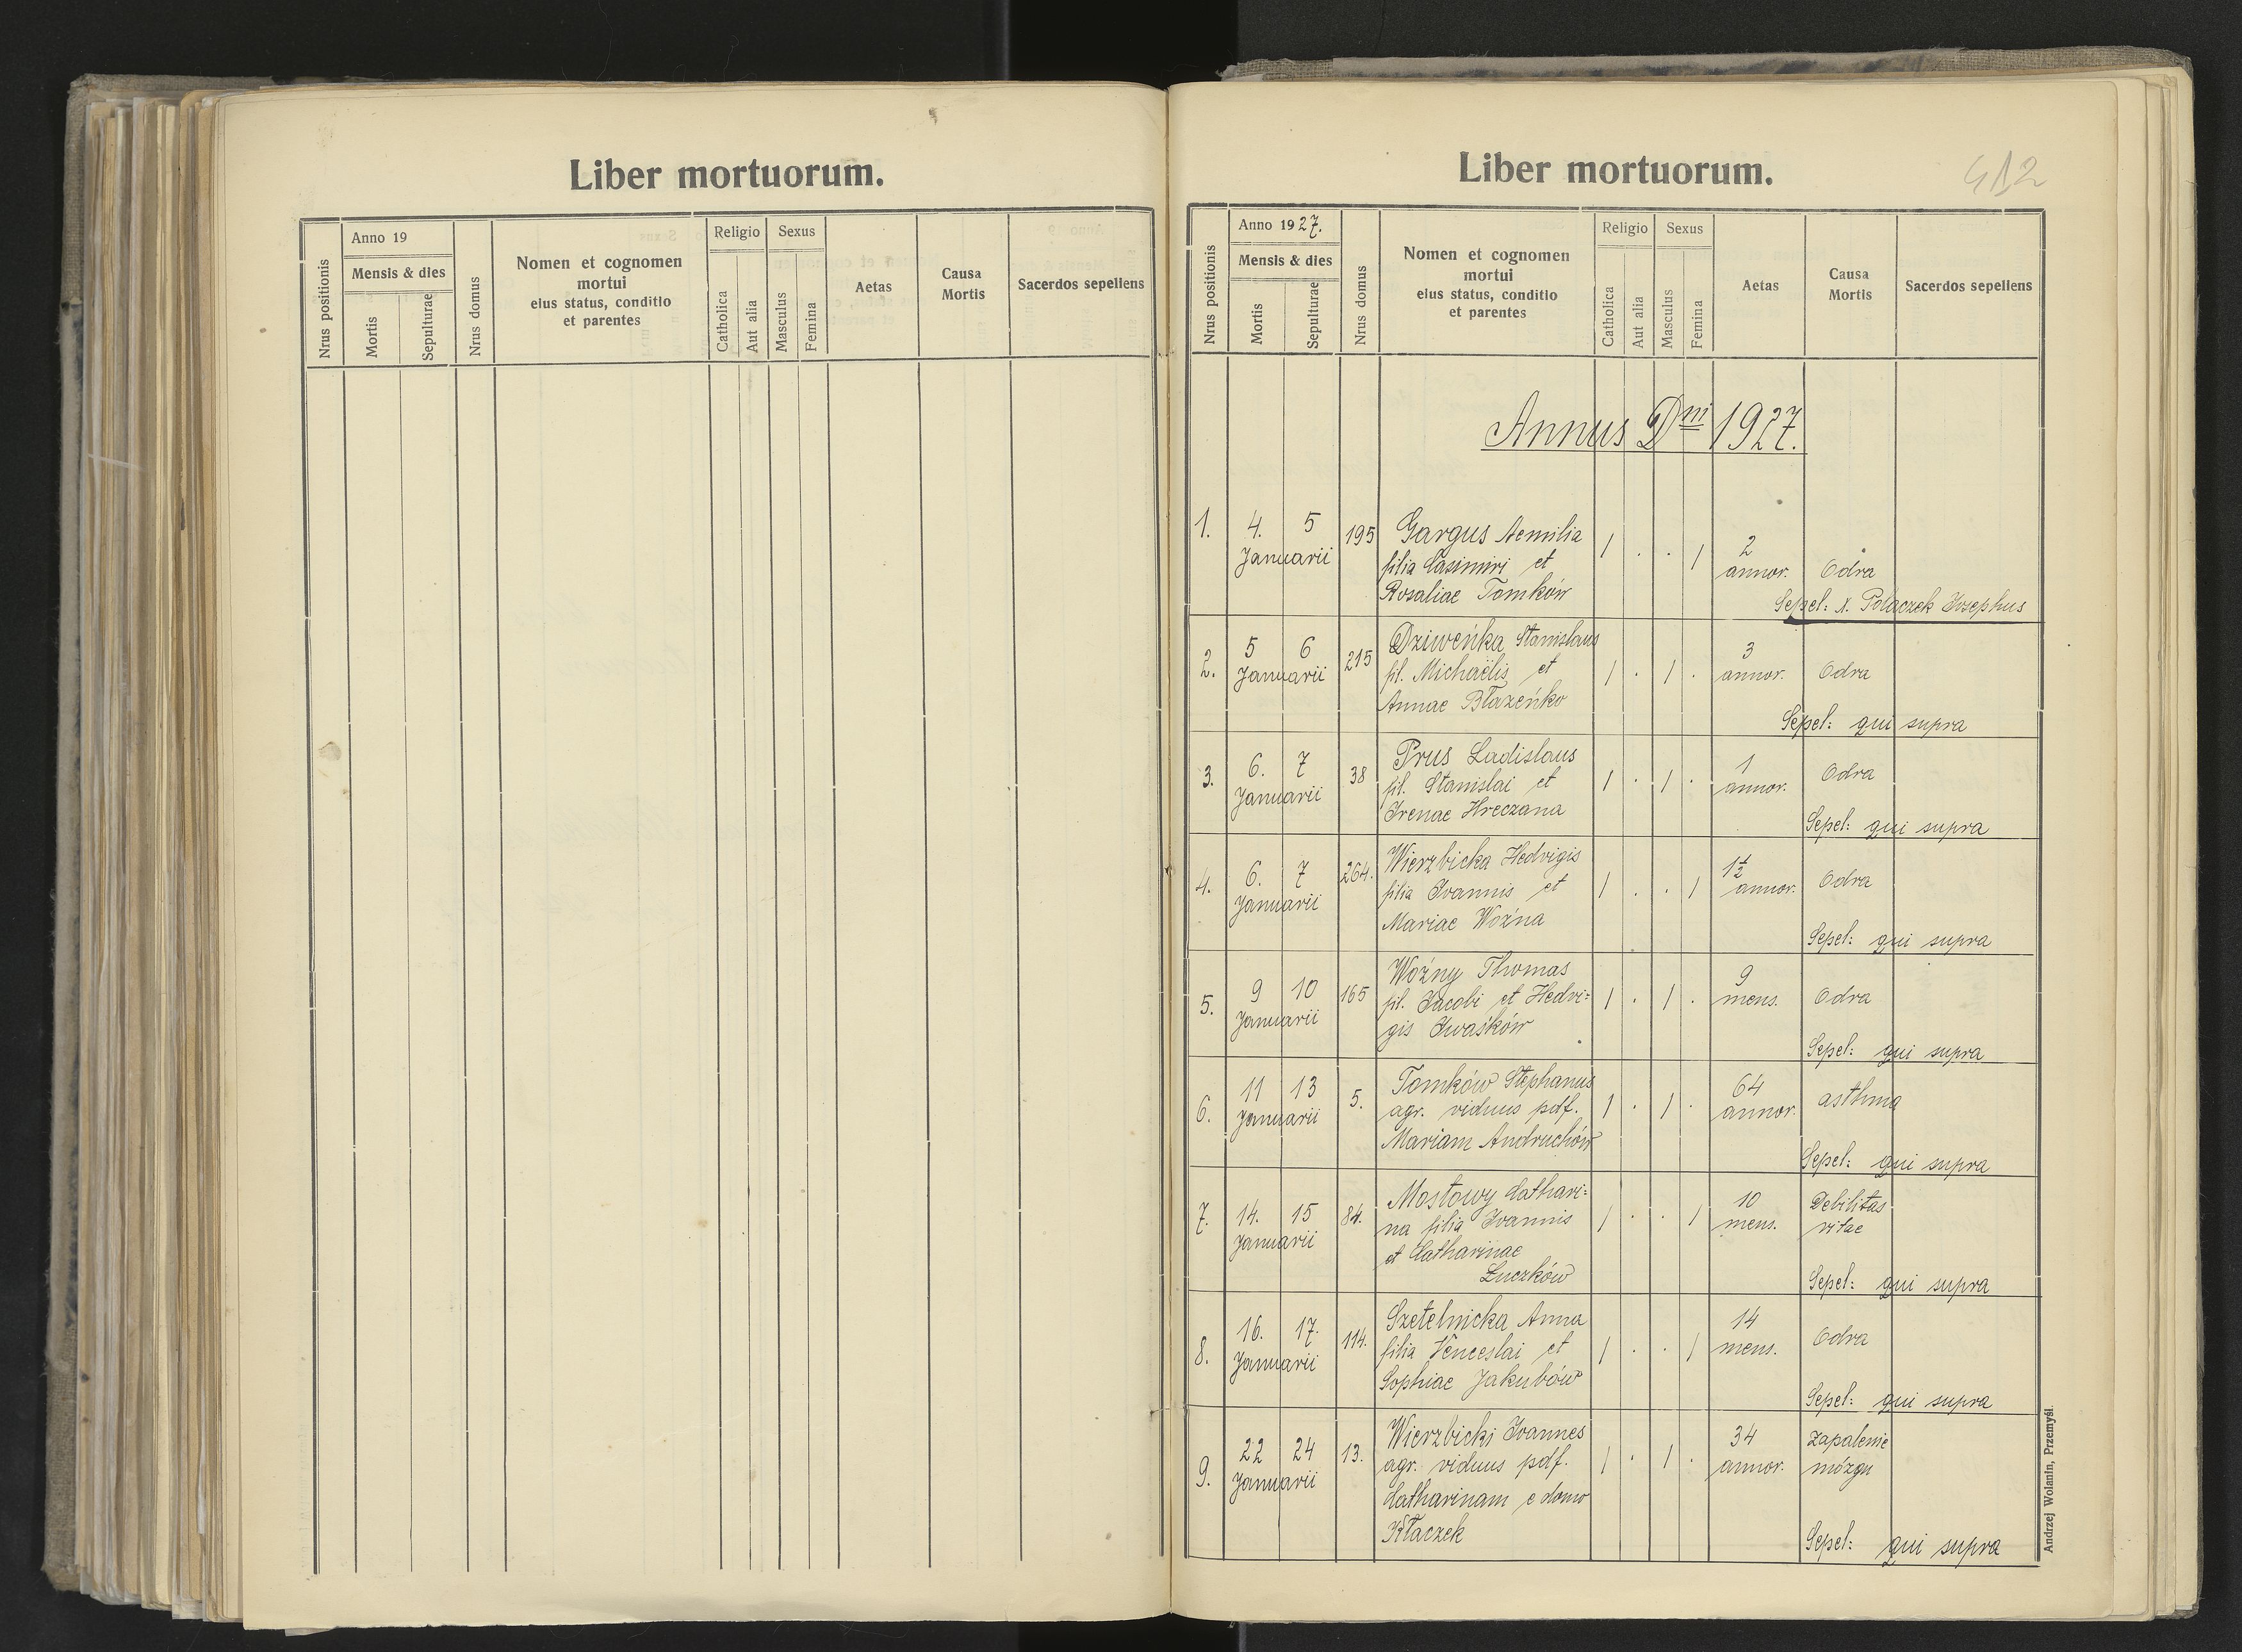 Liber mortuorum.
Nrus positionis
Anno 19
Mensis & dies
Mortis
Sepulturae
Nrus domus
Nomen et cognomen
mortui
eius status, conditio
et parentes
Religio
Catholica
Aut alia
Sexus
Masculus
Femina
Aetas
Causa
Mortis
Sacerdos sepeliens
Liber mortuorum.
412
Nrus positionis
Anno 1927.
Mensis & dies
Mortis
Sepulturae
Nrus domus
Nomen et cognomen
mortui
eius status, conditio
et parentes
Religio
Catholica
Aut alia
Sexus
Masculus
Femina
Aetas
Causa
Mortis
Sacerdos sepeliens
Annus Dni 1927.
1. 4. 5 195 Gargus Aemilia
Januarii filia Casimiri et / . . / 2
Rosaliae Tomków annor. Odra
Sepel: X. Polaczek Josephus
2. 5 6 215 Dziweńka Stanislaus
Januarii fil. Michaëlis et / . / . 3 annor. Odra
Annae Błazeńko
Sepel: qui supra
3. 6. 7 38 Prus Ladislaus
Januarii fil. Stanislai et / . / . 1 annor. Odra
Irenae Hreczana
Sepel: qui supra
4. 6. 7 264. Wierzbicka Hedvigis
Januarii filia Ioannis et / . . / 1½ annor. Odra
Mariae Woźna
Sepel: qui supra
5. 9 10 165 Woźny Thomas
Januarii fil. Jacobi et Hedvi= / . / . 9 mens. Odra
gis Iwaśków
Sepel: qui supra
6. 11 13 5. Tomków Stephanus
Januarii agr. viduus pdf. / . / . 64 annor. asthma
Mariam Andruchów
Sepel: qui supra
7. 14. 15 84. Mostowy Cathari=
Januarii na filia Ioannis / . . / 10 mens. Debilitas
et Catharinae vitae
Łuczków
Sepel: qui supra
8. 16. 17. 114. Szetelnicka Anna
Januarii filia Venceslai et / . . / 14 mens. Odra
Sophiae Jakubów
Sepel: qui supra
9. 22 24 13. Wierzbicki Ioannes
Januarii agr. viduus pdf. / . / . 34 annor. Zapalenie
Catharinam e domo mózgu
Kłaczek
Sepel: qui supra
Andrzej Wolanin, Przemyśl.